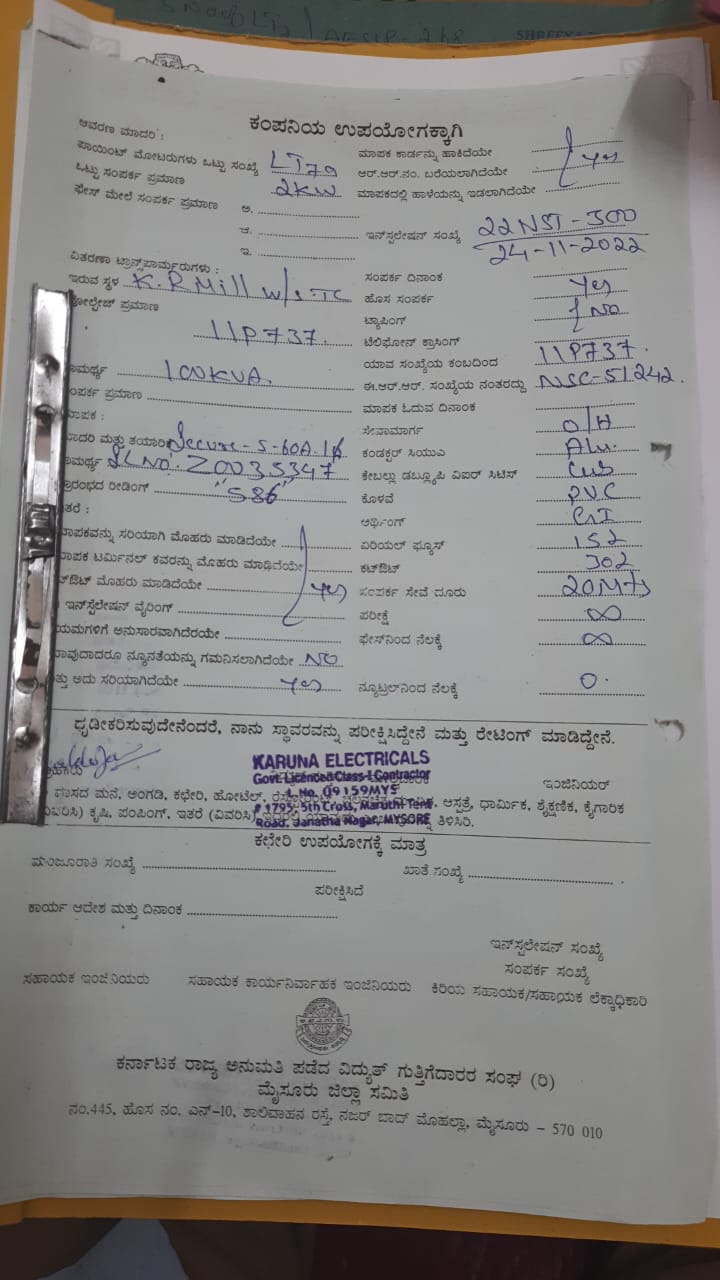 SHREYAS
ಕಂಪನಿಯ ಉಪಯೋಗಕ್ಕಾಗಿ
ಆವರಣ ಮಾದರಿ :
ಪಾಯಿಂಟ್ ಮೋಟರುಗಳು ಒಟ್ಟು ಸಂಖ್ಯೆ LT7a ಮಾಪಕ ಕಾರ್ಡನ್ನು ಹಾಕಿದೆಯೇ
ಒಟ್ಟು ಸಂಪರ್ಕ ಪ್ರಮಾಣ 2KW ಆರ್.ಆರ್.ನಂ. ಬರೆಯಲಾಗಿದೆಯೇ yes
ಫೇಸ್ ಮೇಲೆ ಸಂಪರ್ಕ ಪ್ರಮಾಣ ಅ. ಮಾಪಕದಲ್ಲಿ ಹಾಳೆಯನ್ನು ಇಡಲಾಗಿದೆಯೇ
ಆ. ಇನ್‌ಸ್ಟಲೇಷನ್ ಸಂಖ್ಯೆ 22NST-300
ಇ. 24-11-2022
ವಿತರಣಾ ಟ್ರಾನ್ಸ್‌ಫಾರ್ಮರುಗಳು :
ಇರುವ ಸ್ಥಳ K.R Mill w/s TC ಸಂಪರ್ಕ ದಿನಾಂಕ yes
ವೋಲ್ಟೇಜ್ ಪ್ರಮಾಣ ಹೊಸ ಸಂಪರ್ಕ
ಟ್ಯಾಪಿಂಗ್ NO
11P737. ಟೆಲಿಫೋನ್ ಕ್ರಾಸಿಂಗ್
ಯಾವ ಸಂಖ್ಯೆಯ ಕಂಬದಿಂದ 11P737.
ಾಮರ್ಥ್ಯ 100KVA. ಈ.ಆರ್.ಆರ್. ಸಂಖ್ಯೆಯ ನಂತರದ್ದು NSC-51242.
ಂಪರ್ಕ ಪ್ರಮಾಣ ಮಾಪಕ ಓದುವ ದಿನಾಂಕ
ಾಪಕ : ಸೇವಾಮಾರ್ಗ O/H
ಾದರಿ ಮತ್ತು ತಯಾರಿ Secure-5-60A.1ϕ ಕಂಡಕ್ಟರ್ ಸಿಯುಎ Alu.
ಾಮರ್ಥ್ಯ SLNo: Z0035347 ಕೇಬಲ್ಲು ಡಬ್ಲ್ಯೂಪಿ ವಿಐರ್ ಸಿಟಿಸ್
್ರಾರಂಭದ ರೀಡಿಂಗ್ "586" ಕೊಳವೆ PVC
ತರೆ : ಆರ್ಥಿಂಗ್ GI
ಾಪಕವನ್ನು ಸರಿಯಾಗಿ ಮೊಹರು ಮಾಡಿದೆಯೇ ಏರಿಯಲ್ ಫ್ಯೂಸ್ 152
ಾಪಕ ಟರ್ಮಿನಲ್ ಕವರನ್ನು ಮೊಹರು ಮಾಡಿದೆಯೇ ಕಟ್‌ಔಟ್ 302
ಟ್‌ಔಟ್ ಮೊಹರು ಮಾಡಿದೆಯೇ yes ಸಂಪರ್ಕ ಸೇವೆ ದೂರು 20Mts
ಇನ್‌ಸ್ಟೆಲೇಷನ್ ವೈರಿಂಗ್ ಪರೀಕ್ಷೆ ∞
ಯಮಗಳಿಗೆ ಅನುಸಾರವಾಗಿದೆರೆಯೇ ಫೇಸ್‌ನಿಂದ ನೆಲಕ್ಕೆ ∞
ಾವುದಾದರೂ ನ್ಯೂನತೆಯನ್ನು ಗಮನಿಸಲಾಗಿದೆಯೇ NO
ತ್ತು ಅದು ಸರಿಯಾಗಿದೆಯೇ yes ನ್ಯೂಟ್ರಲ್‌ನಿಂದ ನೆಲಕ್ಕೆ 0.
ಧೃಡೀಕರಿಸುವುದೇನೆಂದರೆ, ನಾನು ಸ್ಥಾವರವನ್ನು ಪರೀಕ್ಷಿಸಿದ್ದೇನೆ ಮತ್ತು ರೇಟಿಂಗ್ ಮಾಡಿದ್ದೇನೆ.
KARUNA ELECTRICALS
Govt. Licenced Class-I Contractor
L.No. 09159MYS
# 1795, 5th Cross, Maruthi Temp.
Road. Janatha Nagar, MYSORE
ಇಂಜಿನಿಯರ್
ವಾಸದ ಮನೆ, ಅಂಗಡಿ, ಕಛೇರಿ, ಹೋಟೆಲ್, ಆಸ್ಪತ್ರೆ, ಧಾರ್ಮಿಕ, ಶೈಕ್ಷಣಿಕ, ಕೈಗಾರಿಕ
ವಿವರಿಸಿ) ಕೃಷಿ, ಪಂಪಿಂಗ್, ಇತರೆ (ವಿವರಿಸಿ) ತಿಳಿಸಿರಿ.
ಕಛೇರಿ ಉಪಯೋಗಕ್ಕೆ ಮಾತ್ರ
ಮಂಜೂರಾತಿ ಸಂಖ್ಯೆ ಖಾತೆ ಸಂಖ್ಯೆ
ಪರೀಕ್ಷಿಸಿದೆ
ಕಾರ್ಯ ಆದೇಶ ಮತ್ತು ದಿನಾಂಕ
ಇನ್‌ಸ್ಟಲೇಷನ್ ಸಂಖ್ಯೆ
ಸಂಪರ್ಕ ಸಂಖ್ಯೆ
ಸಹಾಯಕ ಇಂಜಿನಿಯರು ಸಹಾಯಕ ಕಾರ್ಯನಿರ್ವಾಹಕ ಇಂಜಿನಿಯರು ಕಿರಿಯ ಸಹಾಯಕ/ಸಹಾಯಕ ಲೆಕ್ಕಾಧಿಕಾರಿ
ಕರ್ನಾಟಕ ರಾಜ್ಯ ಅನುಮತಿ ಪಡೆದ ವಿದ್ಯುತ್ ಗುತ್ತಿಗೆದಾರರ ಸಂಘ (ರಿ)
ಮೈಸೂರು ಜಿಲ್ಲಾ ಸಮಿತಿ
ನಂ.445, ಹೊಸ ನಂ. ಎನ್-10, ಶಾಲಿವಾಹನ ರಸ್ತೆ, ನಜರ್ ಬಾದ್ ಮೊಹಲ್ಲಾ, ಮೈಸೂರು - 570 010